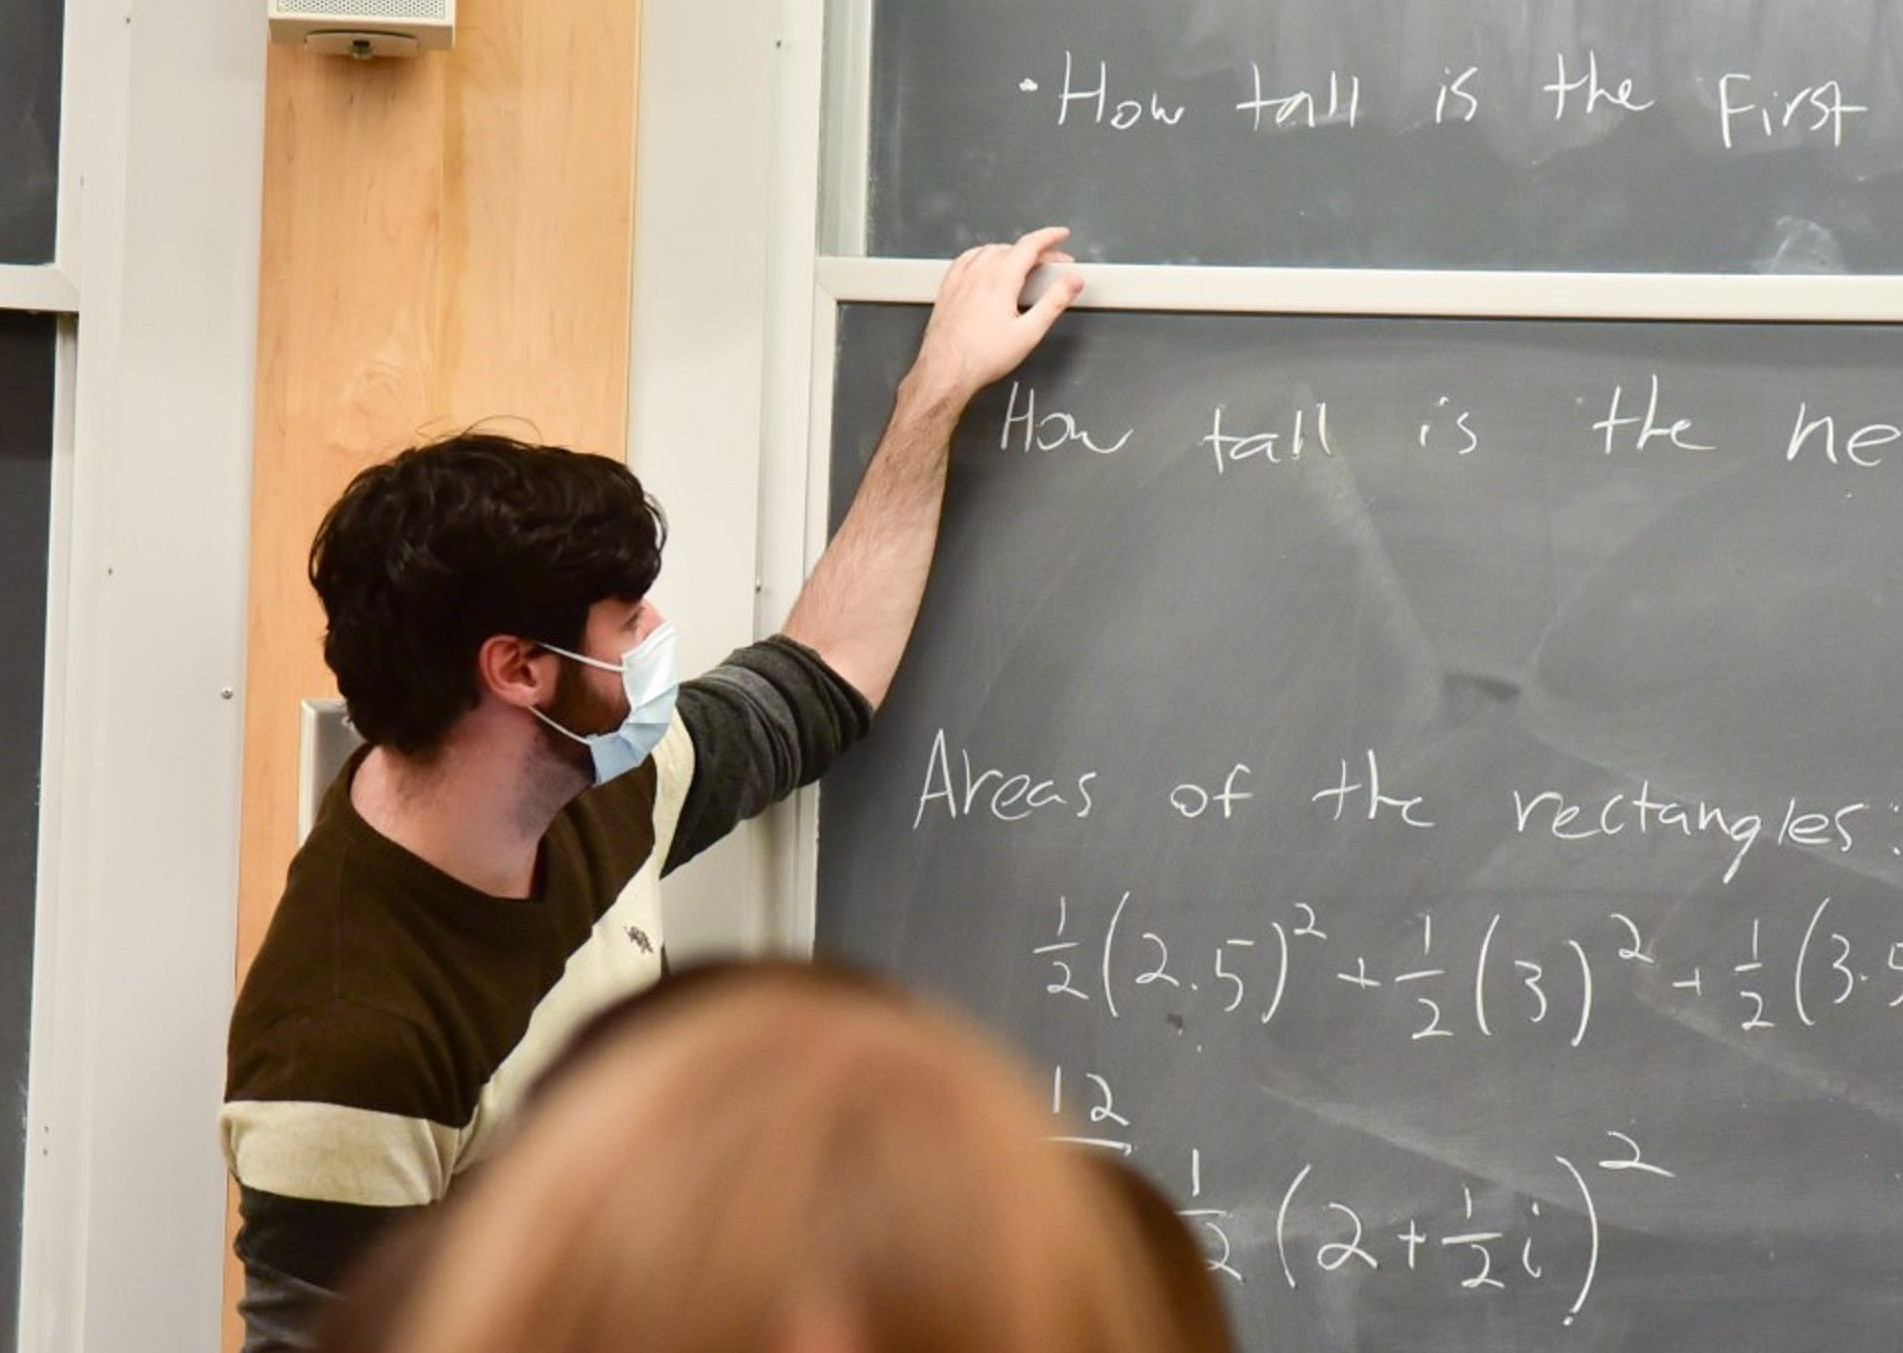 • How tall is the First
How tall is the ne
Areas of the rectangles:
1/2 (2.5)² + 1/2 (3)² + 1/2 (3.5
12
1/2 (2 + 1/2 i)²